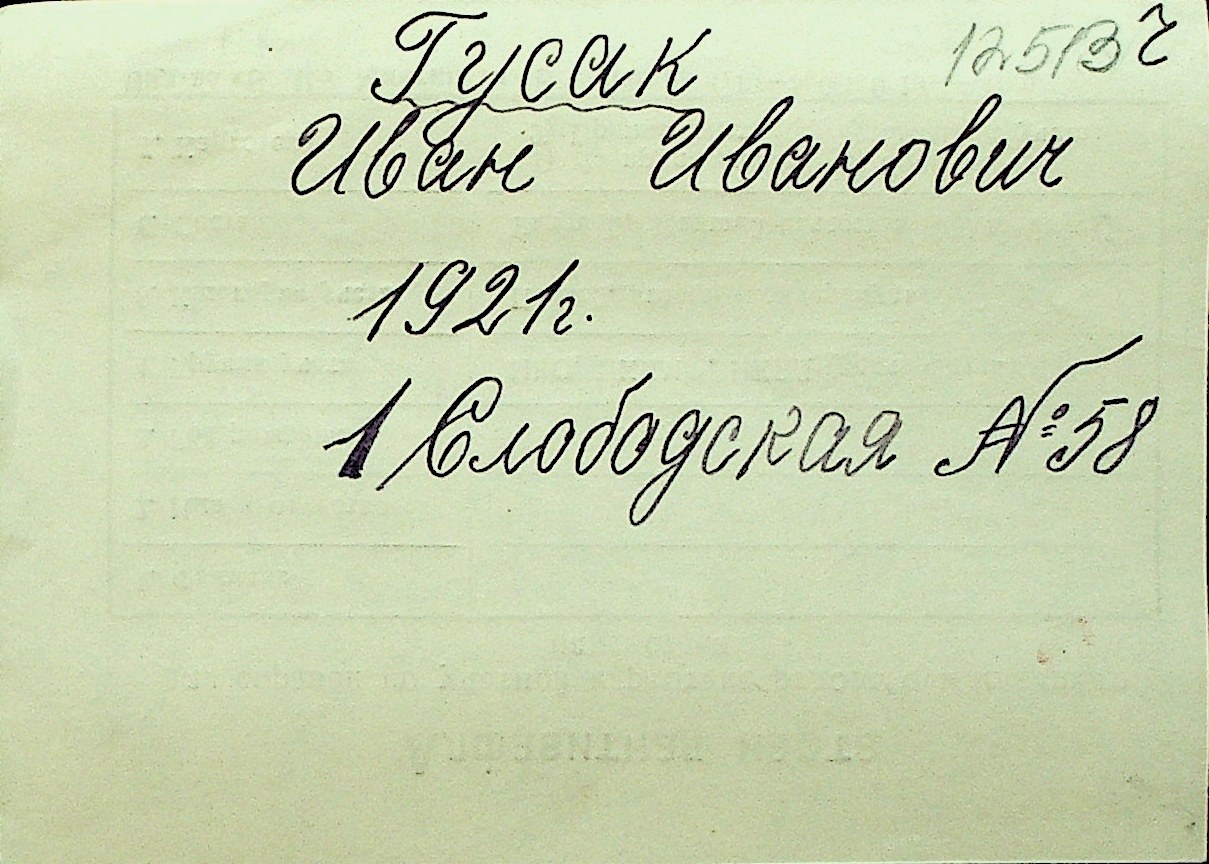 Гусак 12513 г
Иван Иванович
1921г.
1 Слободская №58